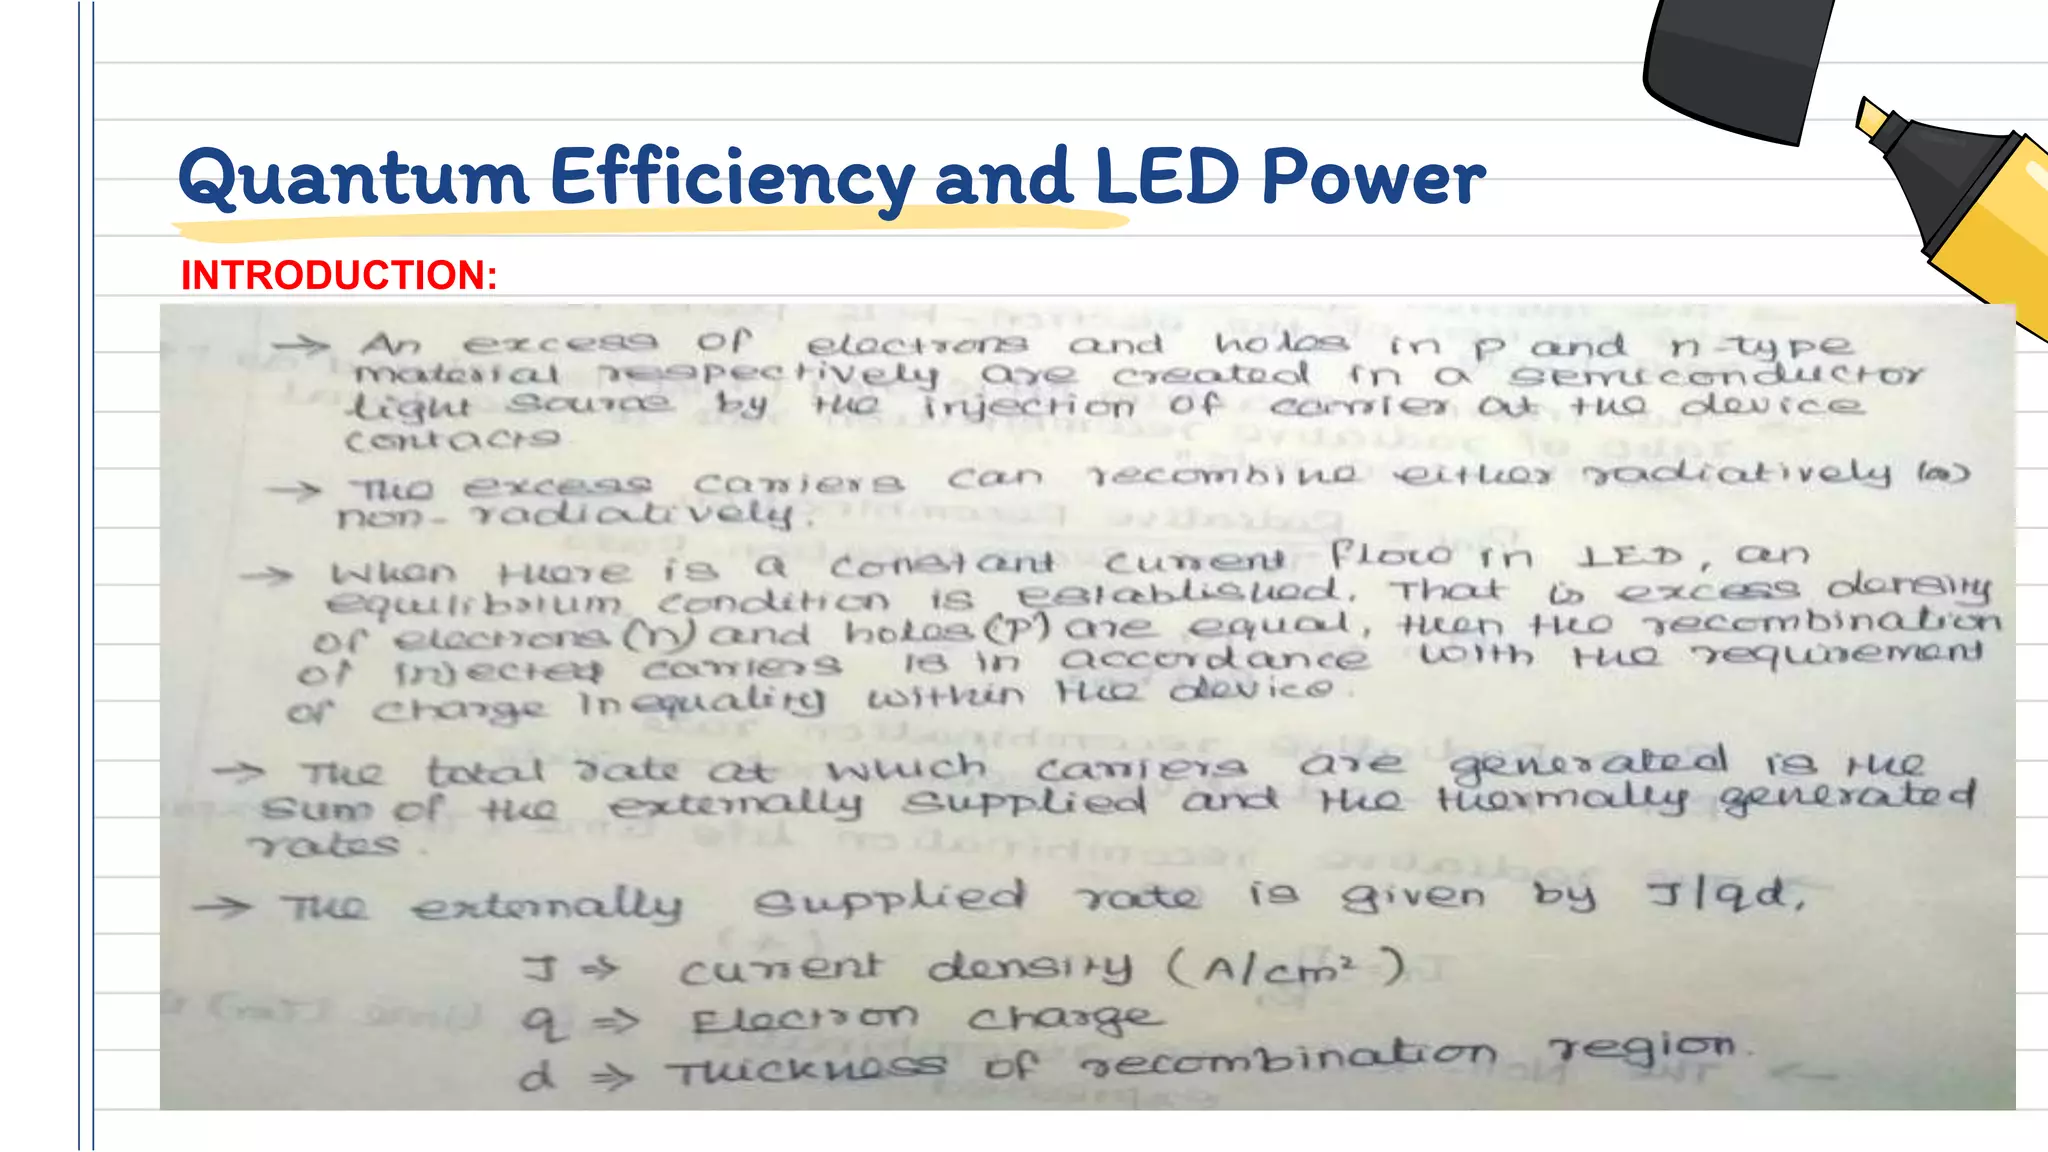 Quantum Efficiency and LED Power
INTRODUCTION:
→ An excess of electrons and holes in p and n-type
material respectively are created in a semiconductor
light source by the injection of carrier at the device
contacts.
→ The excess carriers can recombine either radiatively (or)
non-radiatively.
→ When there is a constant current flow in LED, an
equilibrium condition is established. That is excess density
of electrons (n) and holes (P) are equal, then the recombination
of injected carriers is in accordance with the requirement
of charge inequality within the device.
→ The total rate at which carriers are generated is the
sum of the externally supplied and the thermally generated
rates.
→ The externally supplied rate is given by J/qd,
J ⇒ current density (A/cm²)
q ⇒ Electron charge
d ⇒ Thickness of recombination region.